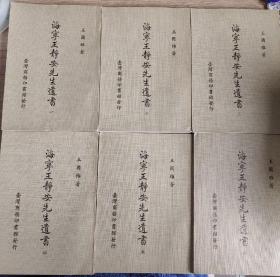 王國維著
海寧王靜安先生遺書 一
臺灣商務印書館發行
王國維著
海寧王靜安先生遺書 二
臺灣商務印書館發行
王國維著
海寧王靜安先生遺書
臺灣商務印書館發行
王國維著
海寧王靜安先生遺書 四
臺灣商務印書館發行
王國維著
海寧王靜安先生遺書 五
臺灣商務印書館發行
王國維著
海寧王靜安先生遺書
臺灣商務印書館發行